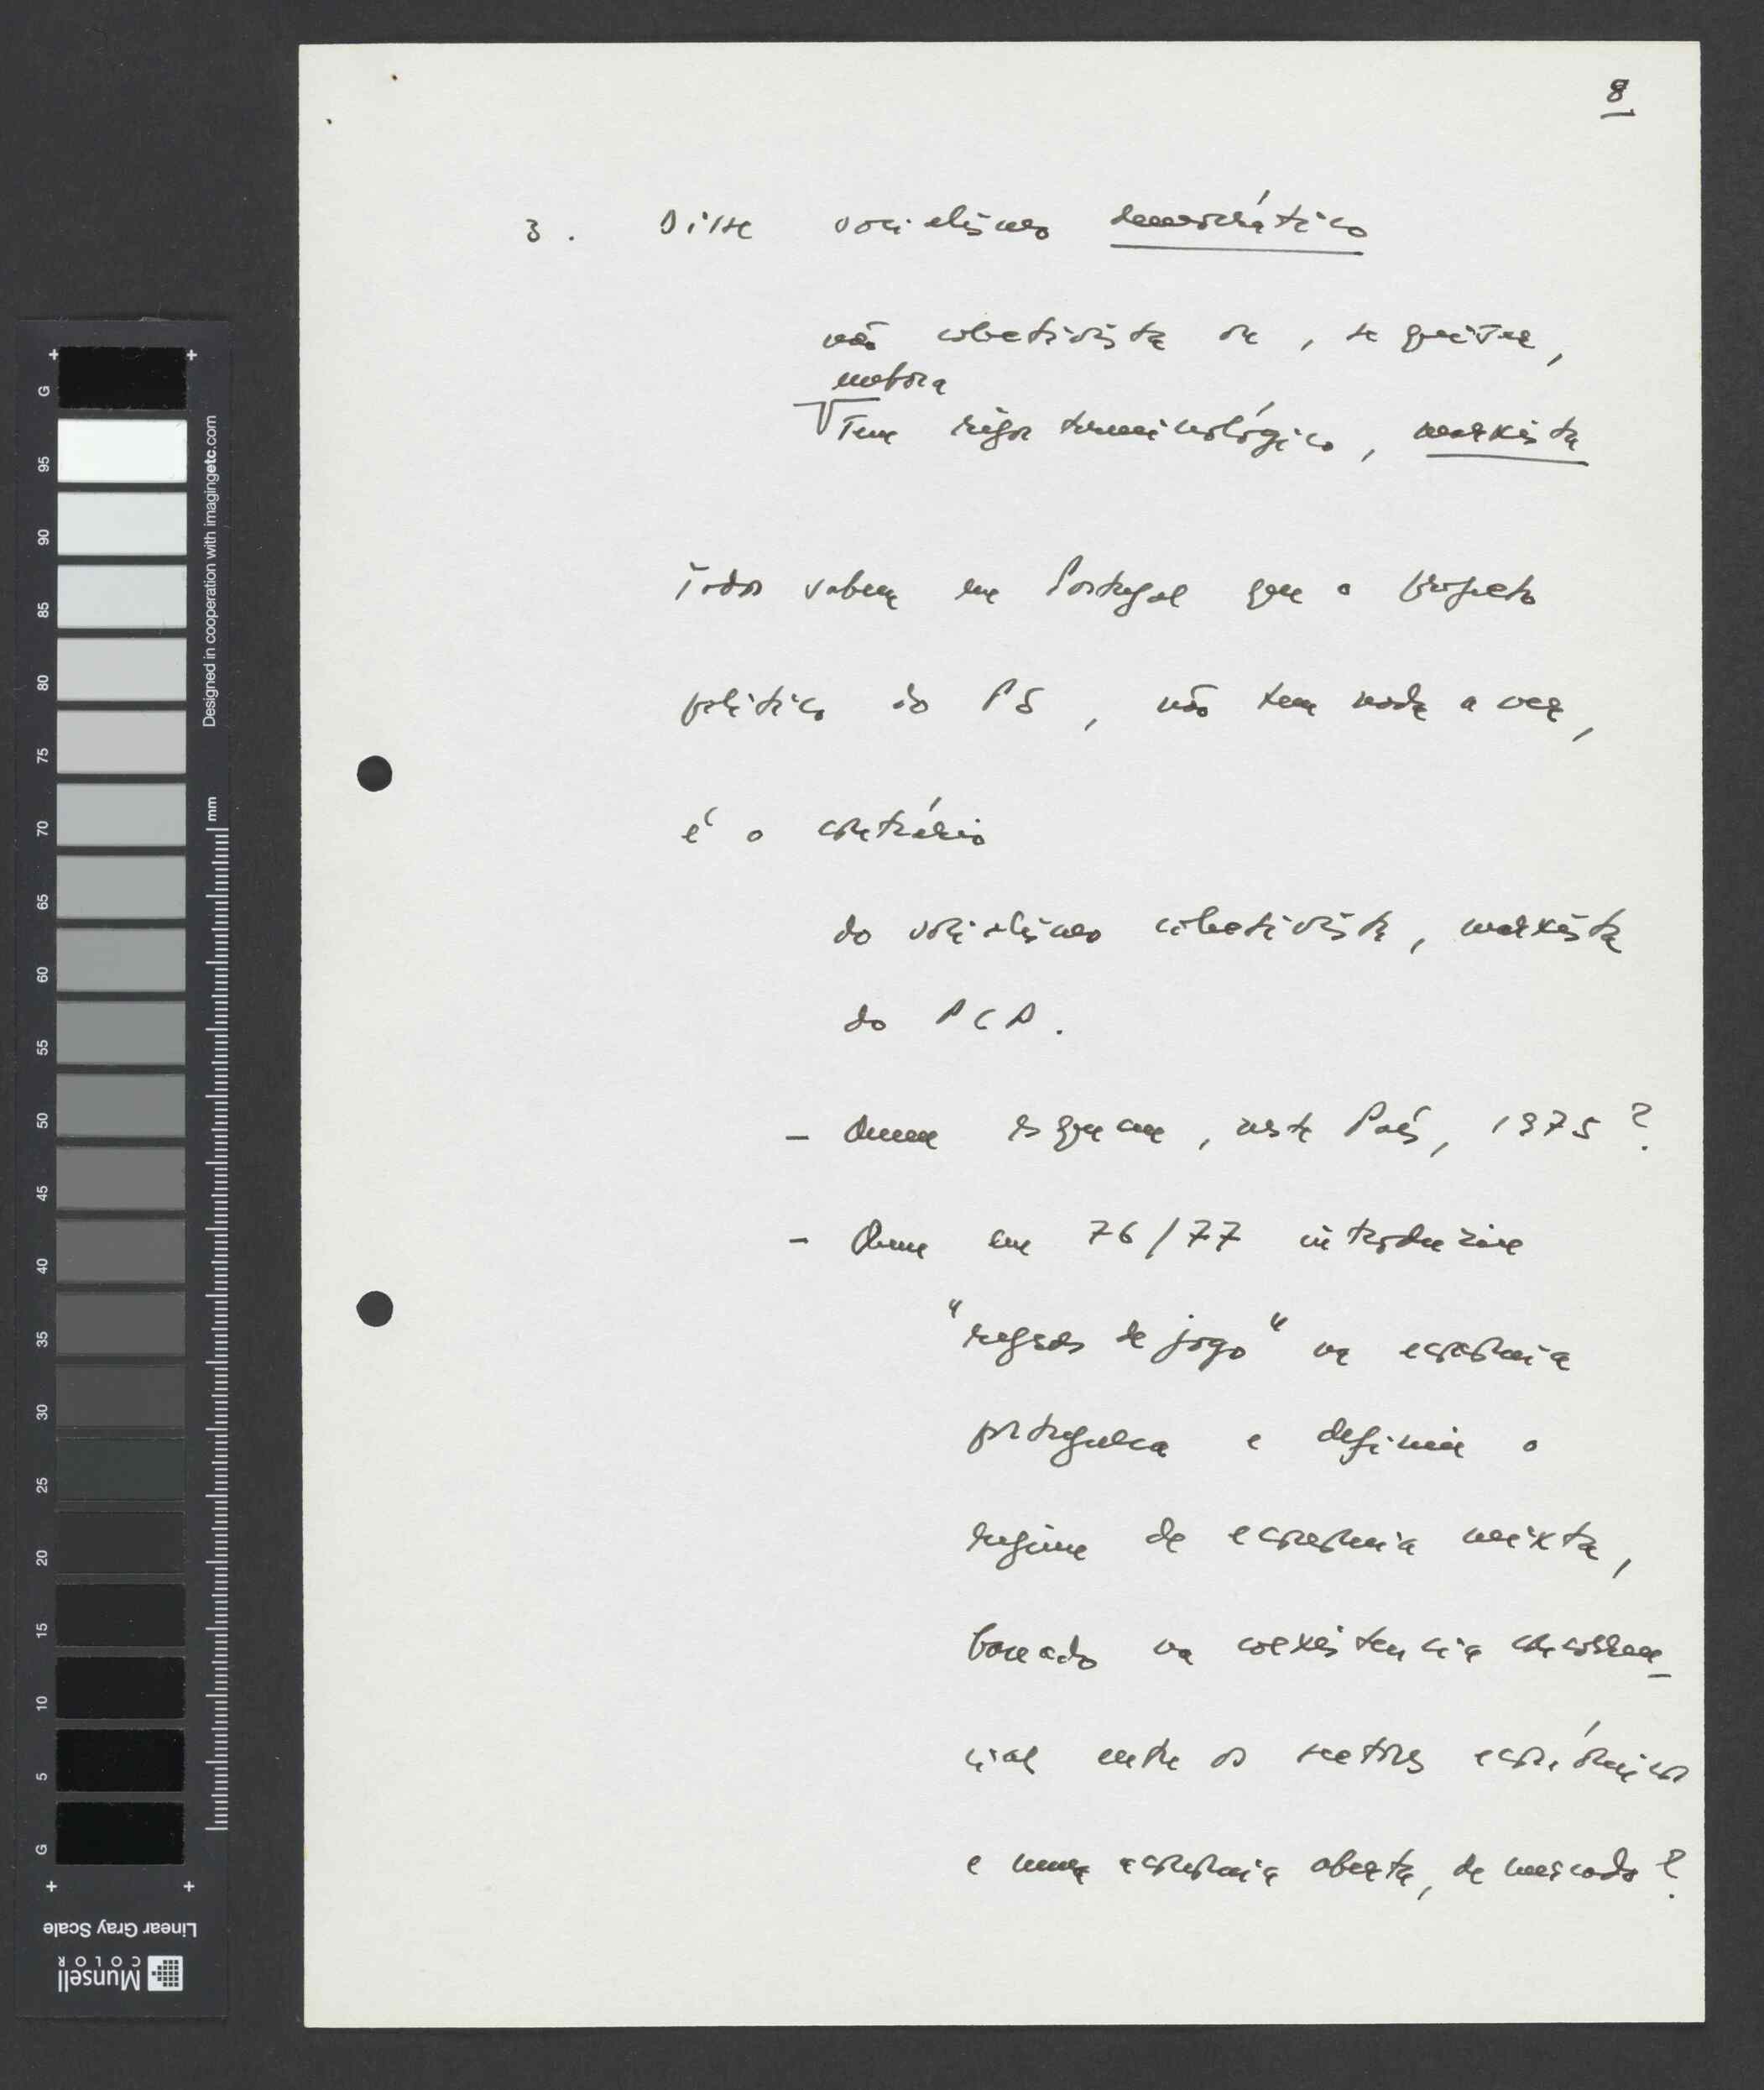 8.
3. Disse socialismo democrático
não colectivista ou, se quiser,
embora
sem rigor terminológico, marxista
Todos sabem em Portugal que o projecto
político do PS, não tem nada a ver,
é o contrário
do socialismo colectivista, marxista
do PCP.
- Quem esquece, neste País, 1975?
- Quem em 76/77 introduziu
"regras de jogo" na economia
portuguesa e definiu o
regime de economia mixta,
baseado na coexistencia concorren-
cial entre os sectores económicos
e numa economia aberta, de mercado?
G
95
90
85
80
75
70
65
60
55
50
45
40
35
30
25
20
15
10
5
G
Designed in cooperation with imagingetc.com
mm
Linear Gray Scale
Munsell
COLOR